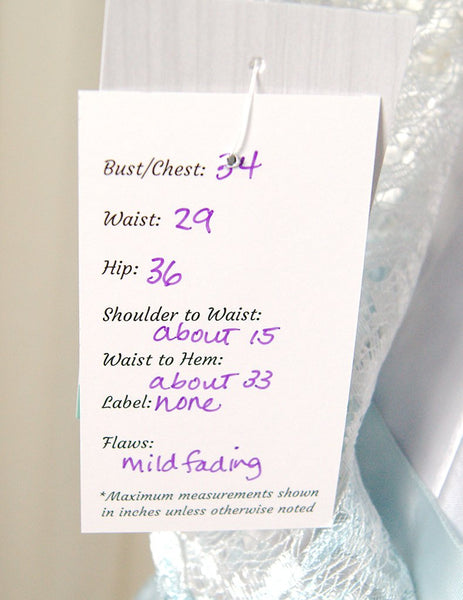 Bust/Chest: 34
Waist: 29
Hip: 36
Shoulder to Waist:
about 15
Waist to Hem:
about 33
Label: none
Flaws:
mild fading
*Maximum measurements shown
in inches unless otherwise noted